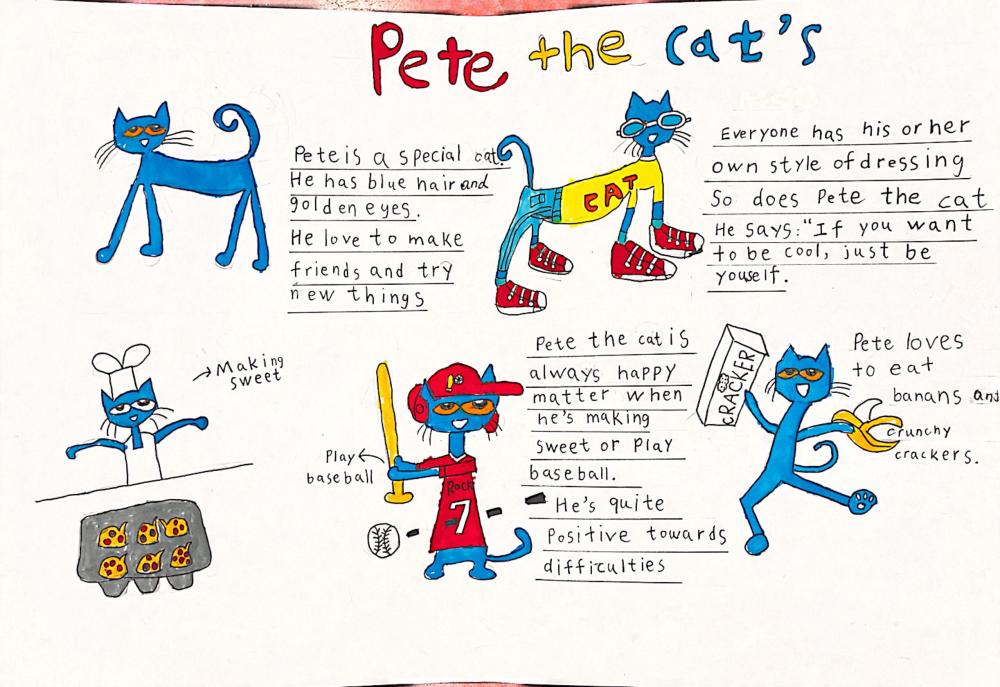 Pete the cat's
Pete is a special cat.
He has blue hair and
golden eyes.
He love to make
friends and try
new things
CAT
Everyone has his or her
own style of dressing
So does Pete the cat
He says:"If you want
to be cool, just be
youself.
Making
sweet
Play
baseball
Rock
7
Pete the cat is
always happy
matter when
he's making
sweet or play
baseball.
He's quite
Positive towards
difficulties
CRACKER
Pete loves
to eat
banans and
crunchy
crackers.